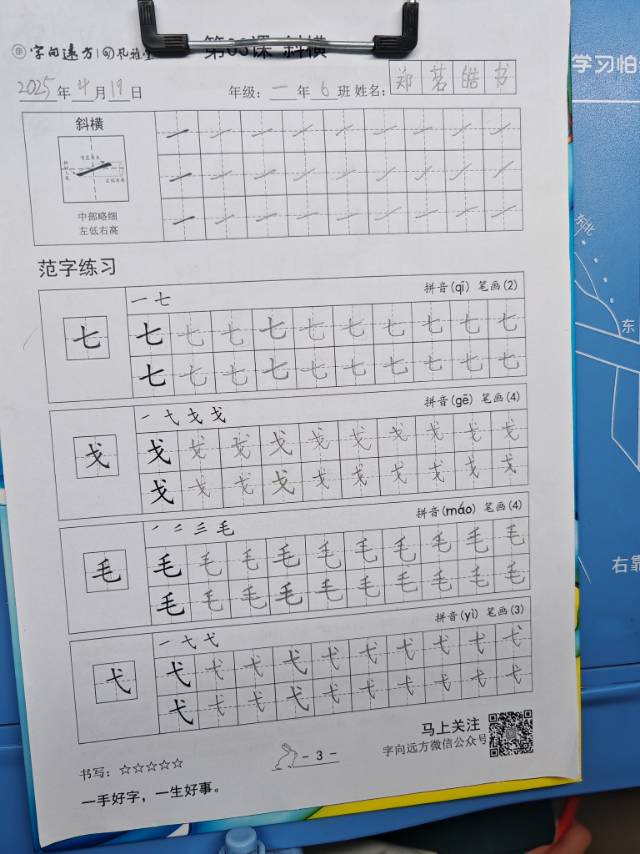 字向远方
斜横
2025年4月19日 年级：一年6班 姓名：郑茗皓书
斜横
中部略细
左低右高
范字练习
一七 拼音(qī) 笔画(2)
七 七七七七七七七七七七
七七七七七七七七七七
一弋戈戈 拼音(gē) 笔画(4)
戈 戈戈戈戈戈戈戈戈戈戈
戈戈戈戈戈戈戈戈戈戈
毛 拼音(máo) 笔画(4)
毛 毛毛毛毛毛毛毛毛毛毛
毛毛毛毛毛毛毛毛毛毛
一弋弋 拼音(yì) 笔画(3)
弋 弋弋弋弋弋弋弋弋弋弋
弋弋弋弋弋弋弋弋弋弋
马上关注
字向远方微信公众号
书写：☆☆☆☆☆
- 3 -
一手好字，一生好事。
学习怕
东北
东
右靠